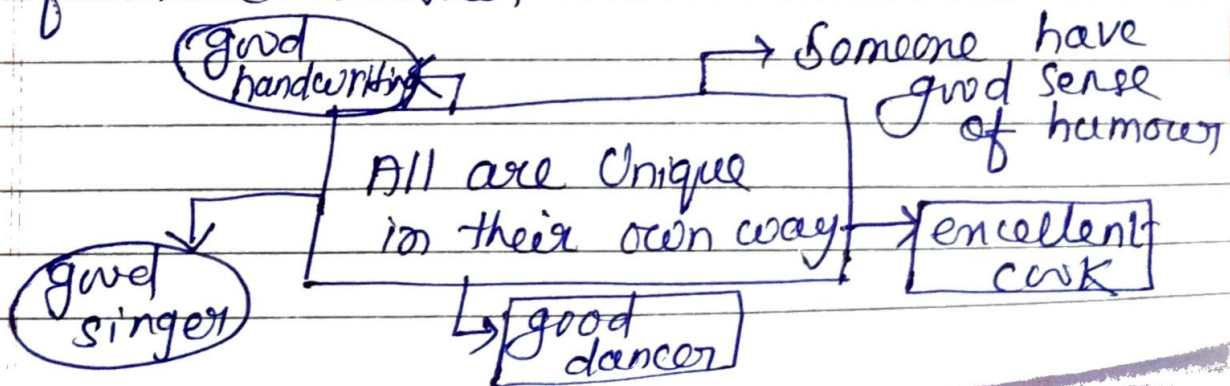 good
handwriting
Someone have
good sense
of humour
All are Unique
in their own way
excellent
cook
good
singer
good
dancer